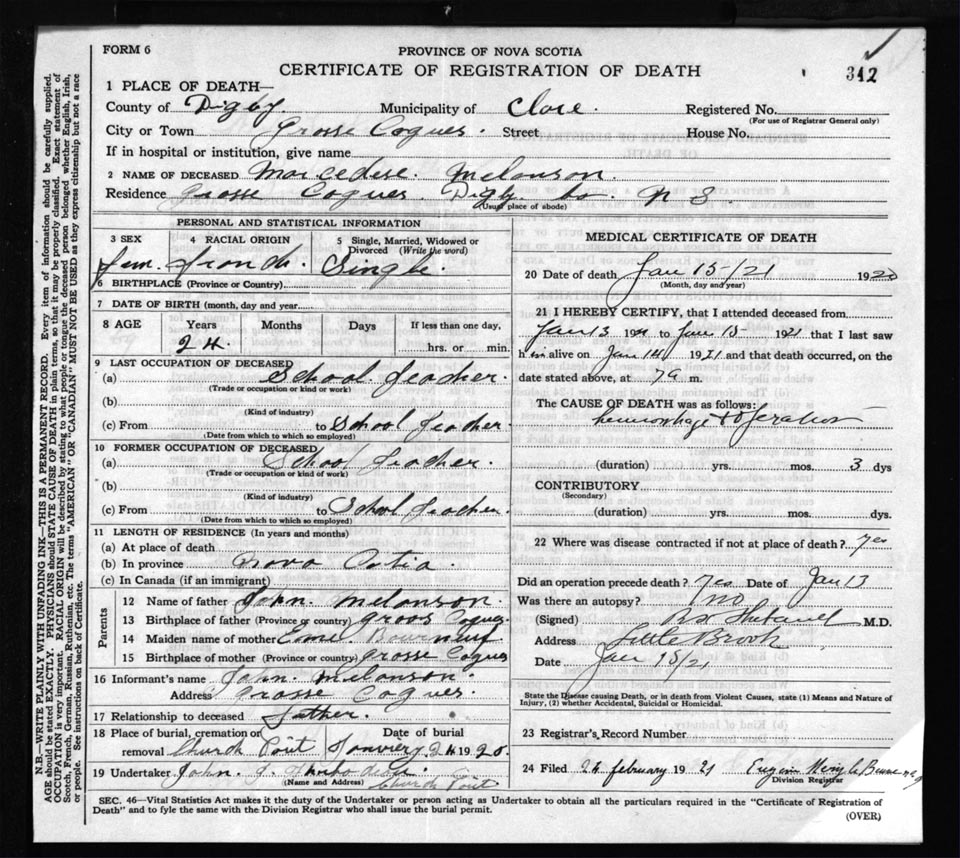 FORM 6
PROVINCE OF NOVA SCOTIA
CERTIFICATE OF REGISTRATION OF DEATH
342
1 PLACE OF DEATH—
County of Digby Municipality of Clare. Registered No.
(For use of Registrar General only)
City or Town Grosse Coques. Street House No.
If in hospital or institution, give name
2 NAME OF DECEASED Marcedese. Melonson.
Residence Grosse Coques Digby Co. N S.
(Usual place of abode)
PERSONAL AND STATISTICAL INFORMATION
3 SEX 4 RACIAL ORIGIN 5 Single, Married, Widowed or Divorced (Write the word)
Fem. French. Single.
6 BIRTHPLACE (Province or Country)
7 DATE OF BIRTH (month, day and year)
8 AGE Years Months Days If less than one day,
24. hrs. or min.
9 LAST OCCUPATION OF DECEASED
(a) School Teacher.
(Trade or occupation or kind of work)
(b)
(Kind of industry)
(c) From to School Teacher.
(Date from which to which so employed)
10 FORMER OCCUPATION OF DECEASED
(a) School Teacher.
(Trade or occupation or kind of work)
(b)
(Kind of industry)
(c) From to School Teacher.
(Date from which to which so employed)
11 LENGTH OF RESIDENCE (In years and months)
(a) At place of death
(b) In province Nova Cotia.
(c) In Canada (if an immigrant)
Parents
12 Name of father John. Melonson.
13 Birthplace of father (Province or country) Groos Coques
14 Maiden name of mother Bournuf
15 Birthplace of mother (Province or country) Grosse Coques
16 Informant's name John. Melonson.
Address Grosse Coques.
17 Relationship to deceased father.
18 Place of burial, cremation or Date of burial
removal Church Point 24 1920.
19 Undertaker John.
(Name and Address) Church Point
MEDICAL CERTIFICATE OF DEATH
20 Date of death Jan 15-/21 1920
(Month, day and year)
21 I HEREBY CERTIFY, that I attended deceased from
Jan 13 1921 to Jan 15 1921 that I last saw
h im alive on Jan 14 1921 and that death occurred, on the
date stated above, at 7 a m.
The CAUSE OF DEATH was as follows:
hemorrhage
(duration) yrs. mos. 3 dys
CONTRIBUTORY
(Secondary)
(duration) yrs. mos. dys.
22 Where was disease contracted if not at place of death? yes
Did an operation precede death? Yes Date of Jan 13
Was there an autopsy? no
(Signed) M.D.
Address Little Brook
Date Jan 15/21
State the Disease causing Death, or in death from Violent Causes, state (1) Means and Nature of
Injury, (2) whether Accidental, Suicidal or Homicidal.
23 Registrar's Record Number
24 Filed 24 february 1921
Division Registrar
SEC. 46—Vital Statistics Act makes it the duty of the Undertaker or person acting as Undertaker to obtain all the particulars required in the "Certificate of Registration of
Death" and to fyle the same with the Division Registrar who shall issue the burial permit.
(OVER)
N.B.—WRITE PLAINLY WITH UNFADING INK—THIS IS A PERMANENT RECORD. Every item of information should be carefully supplied.
AGE should be stated EXACTLY. PHYSICIANS should STATE CAUSE OF DEATH in plain terms, so that it may be properly classified. Exact statement of
OCCUPATION is very important. RACIAL ORIGIN will be described by stating to what people or tongue the deceased person belonged whether English, Irish,
Scotch, French, German, Russian, Ruthenian, etc. The terms "AMERICAN" OR "CANADIAN" MUST NOT BE USED as they express citizenship but not a race
or people. See instructions on back of Certificate.